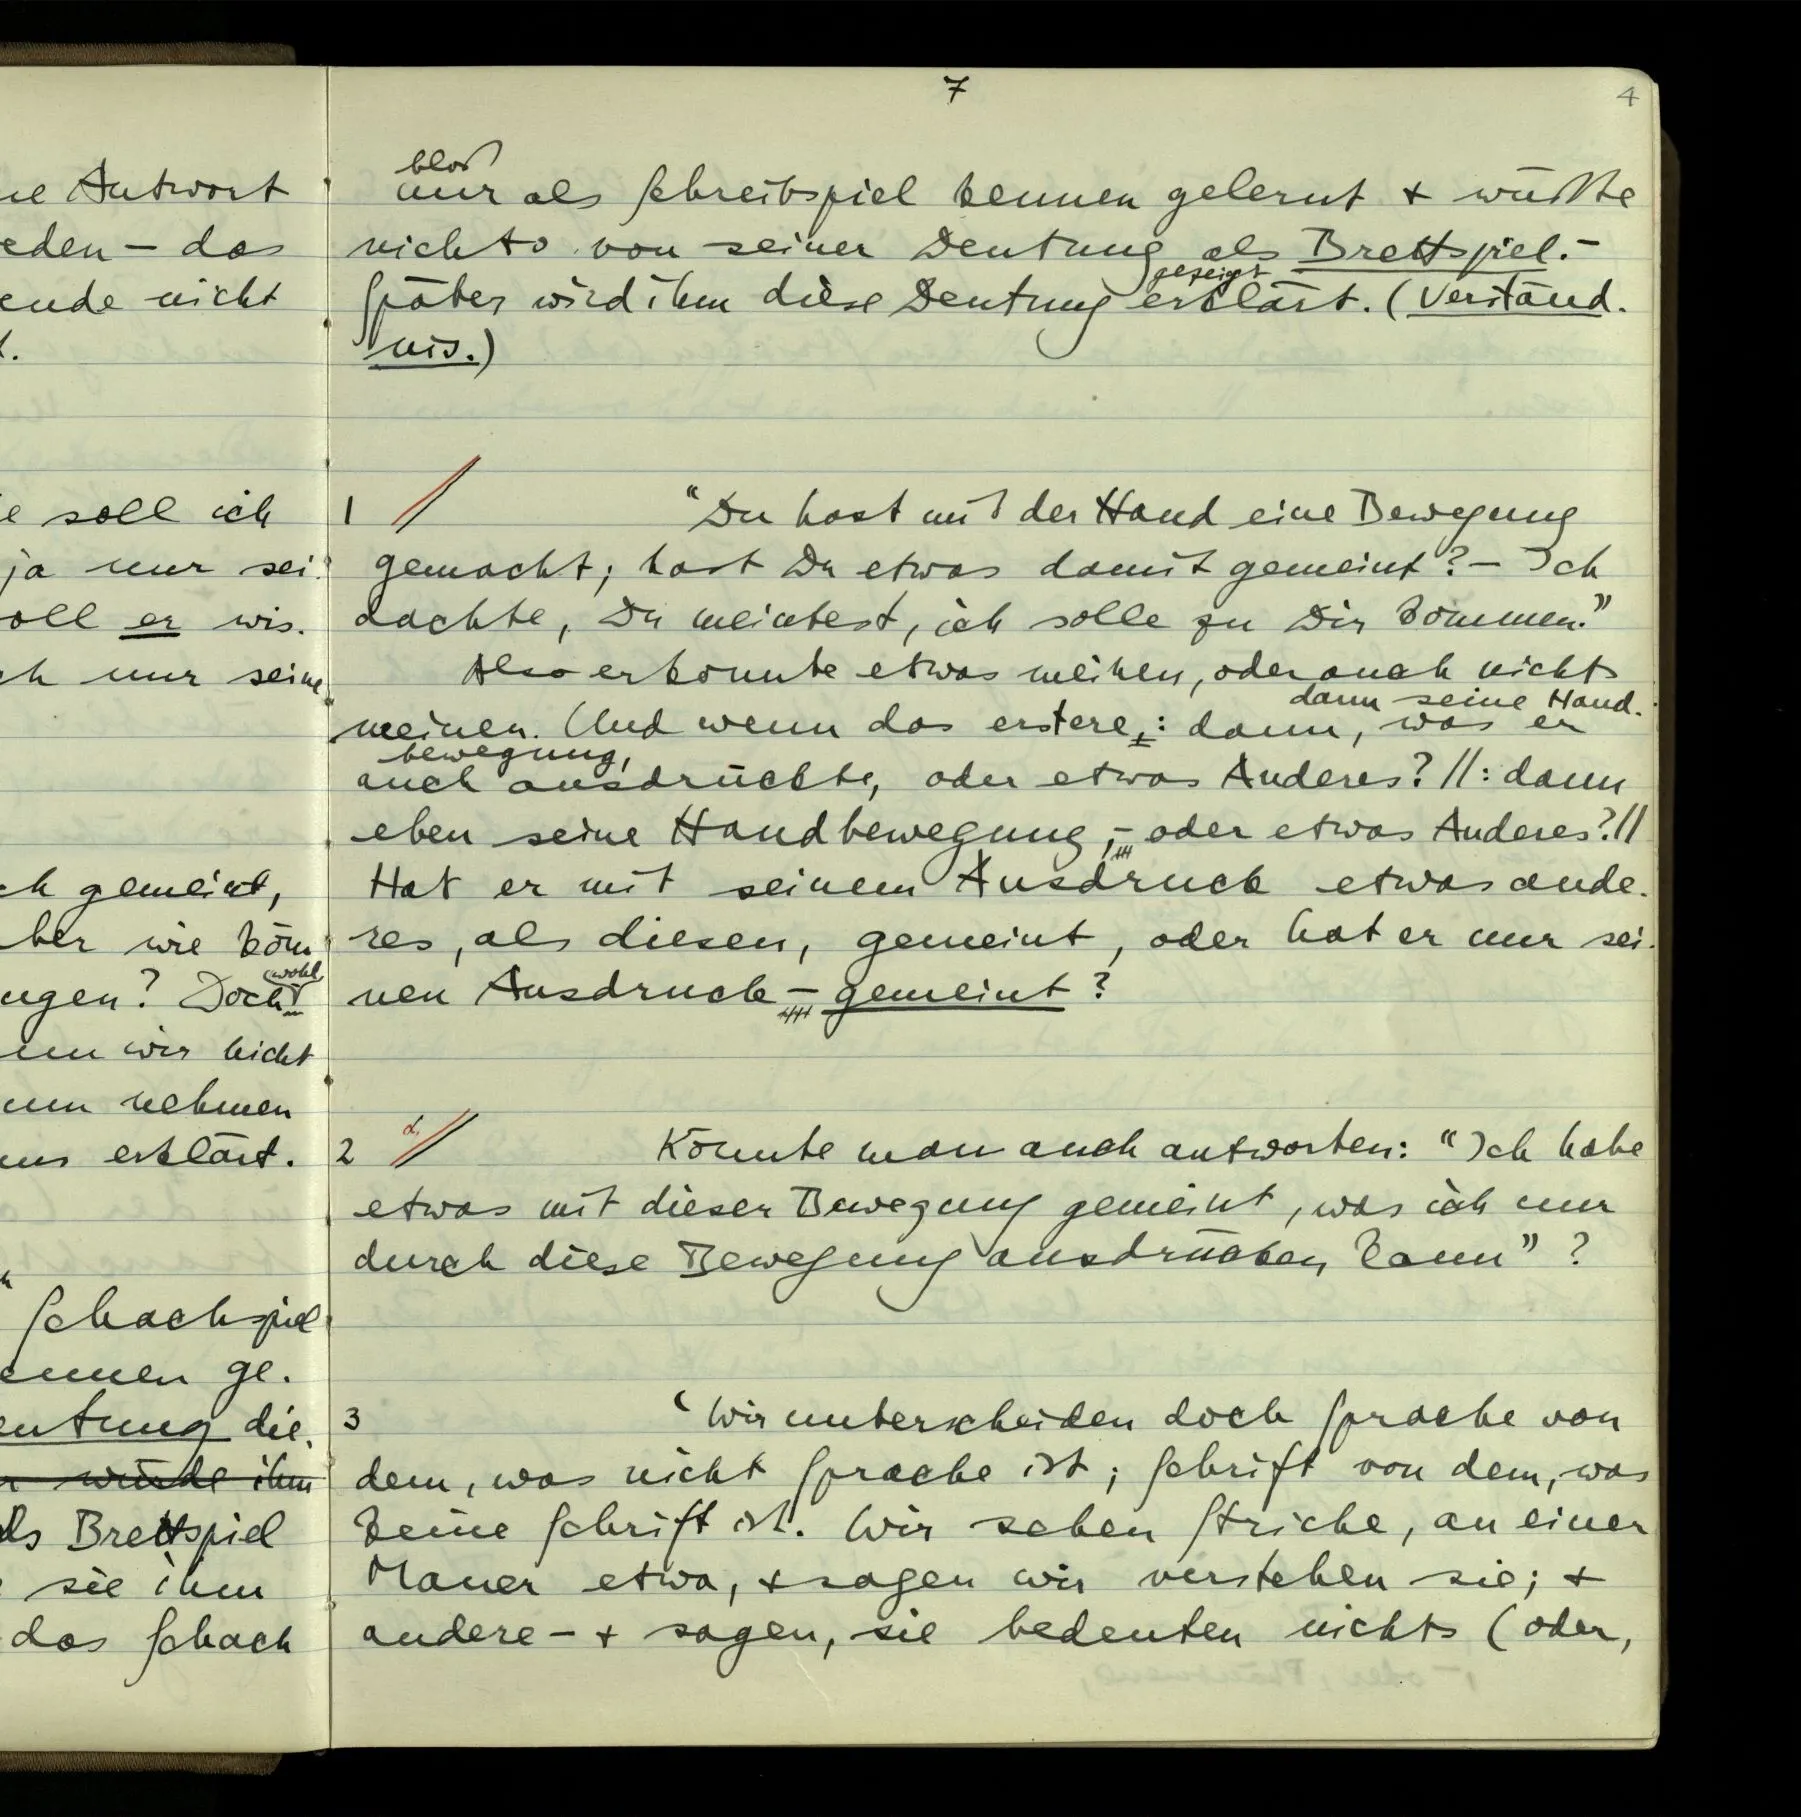 ne Antwort
eden – das
ende nicht
t.
e soll ich
ja nur sei¬
oll er wis¬
ch nur seine
ch gemeint,
ber wie köm
wohl
ngen? Doch
nn wir nicht
nun nehmen
uns erklärt.
Schachspiel
ennen ge¬
eutung die¬
r würde ihm
als Brettspiel
sie ihm
das Schach
7
4
blos
nur als Schreibspiel kennen gelernt + wüßte
nichts von seiner Deutung als Brettspiel. –
gezeigt
Später wird ihm diese Deutung erklärt. (Verständ¬
nis.)
1 // “Du hast mit der Hand eine Bewegung
gemacht; hast Du etwas damit gemeint? – Ich
dachte, Du meintest, ich solle zu Dir kommen.”
Also er konnte etwas meinen, oder auch nichts
dann seine Hand¬
meinen. Und wenn das erstere,: dann, was er
bewegung,
auch ausdrückte, oder etwas Anderes? //: dann
eben seine Handbewegung, – oder etwas Anderes?//
Hat er mit seinem Ausdruck etwas ande¬
res, als diesen, gemeint, oder hat er nur sei¬
nen Ausdruck – gemeint?
2 // Könnte man auch antworten: “Ich habe
etwas mit dieser Bewegung gemeint, was ich nur
durch diese Bewegung ausdrücken kann”?
3 ‘Wir unterscheiden doch Sprache von
dem, was nicht Sprache ist; Schrift von dem, was
keine Schrift ist. Wir sehen Striche, an einer
Mauer etwa, + sagen wir verstehen sie; +
andere – + sagen, sie bedeuten nichts (oder,